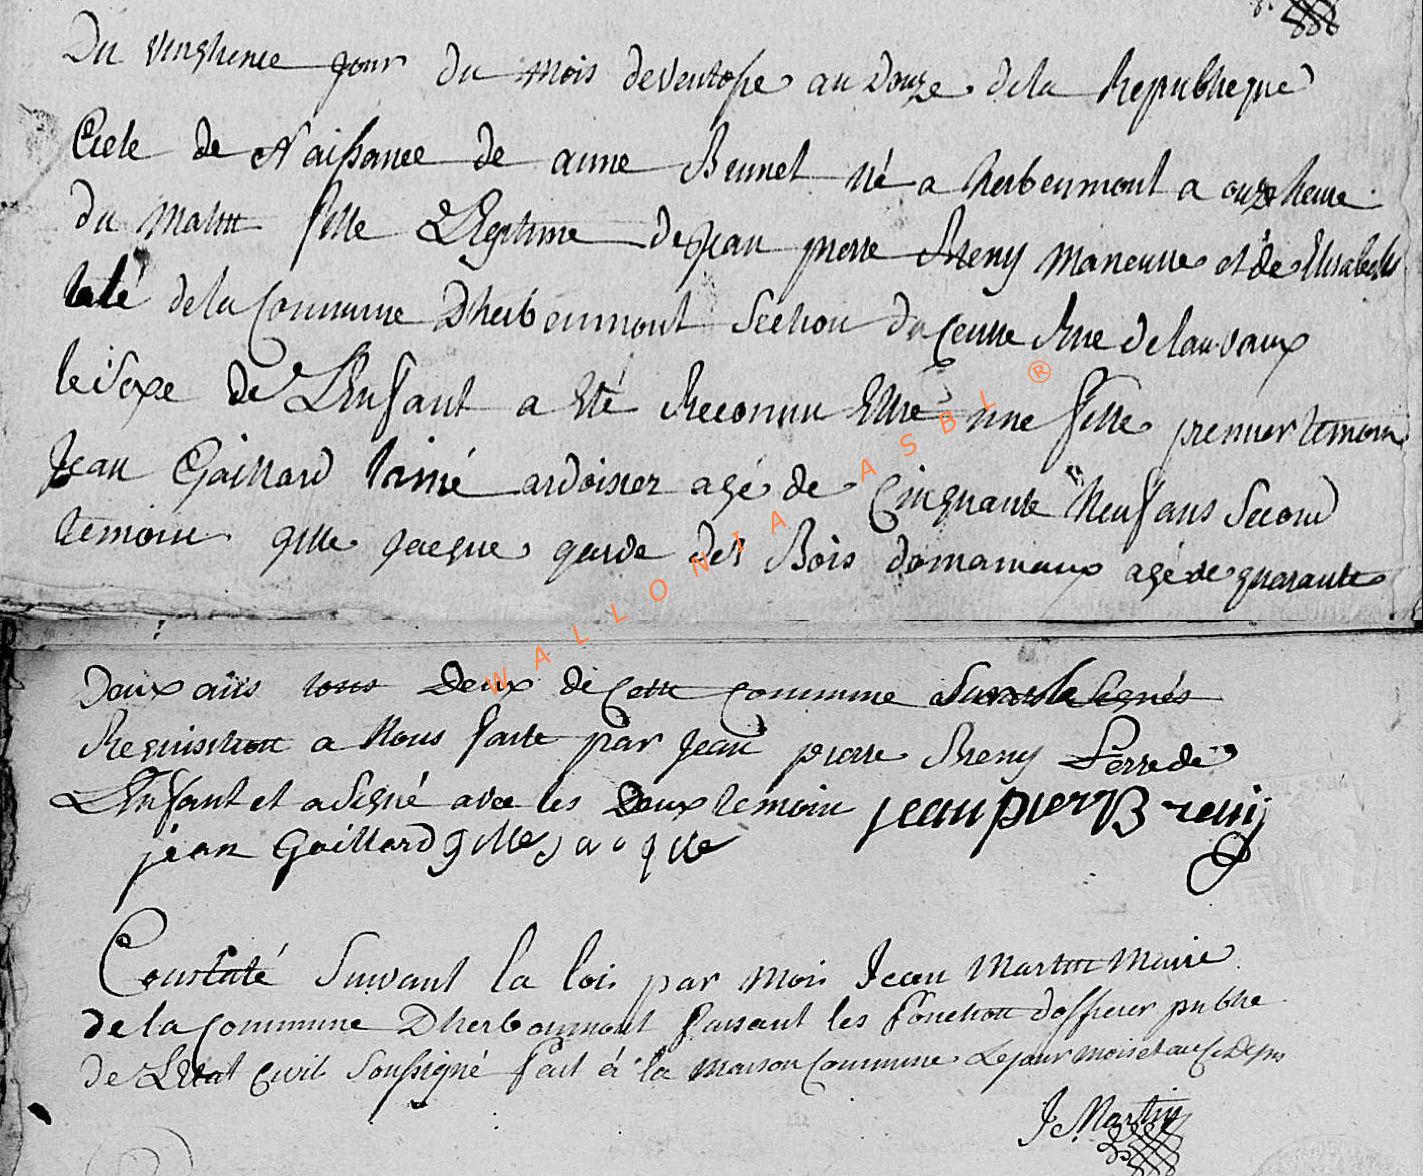 Du vingtieme jour du mois deventose an Douze dela Republieque
Acte de Naissance de anne Brenet né a herbeumont a onze heure
du matin fille Legitime dejean pierre Breny maneuvre et de Elisabeth
de la Commune Dherbeumont Section du Centre Rue delauvaux
lesexe de LEnfant a Eté Reconnu Estre une fille premier temoin
Jean Gaillard ardoisier agé de Cinquante Neuf ans Second
temoin gille jacque garde des Bois domaniaux agé de quarante
WALLONIA ASBL ®
Deux ans tous Deux de Cette Commune
Requisition a Nous faite par Jean pierre Breny Perre de
LEnfant et a Signé avec les Deux temoin jean pierr Breny
jean Gaillard gilles jacque
Constaté Suivant la loi par moi Jean Martin Maire
de la Commune Dherbeumont faisant les fonction dofficier public
de LEtat Civil Soussigné fait à la maison Commune Lejour mois et an Cy Dessus
J Martin